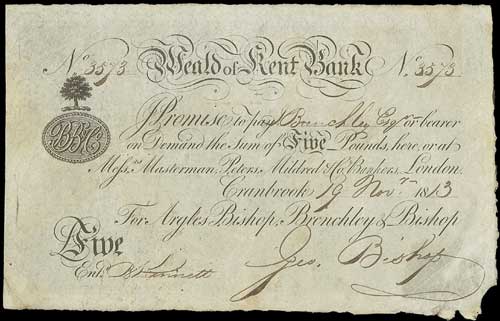 No 3573 Weald of Kent Bank No 3573
I Promise to pay Brenchley Esqr or bearer
on Demand the Sum of Five Pounds, here, or at
Messrs Masterman, Peters, Mildred & Co. Bankers, London.
BB&Co
Cranbrook 19 Novr 1813
For Argles Bishop, Brenchley & Bishop
Five
Entd. Geo. Bishop